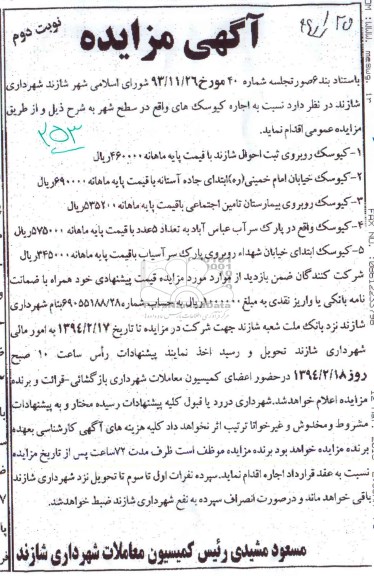 نوبت دوم
آگهی مزایده
باستناد بند ۶صورتجلسه شماره ۴۰ مورخ ۹۳/۱۱/۲۶ شورای اسلامی شهر شازند شهرداری
شازند در نظر دارد نسبت به اجاره کیوسک های واقع در سطح شهر به شرح ذیل و از طریق
مزایده عمومی اقدام نماید.
۲۵۳
۱-کیوسک روبروی ثبت احوال شازند با قیمت پایه ماهانه ۴۶۰۰۰۰ریال
۲-کیوسک خیابان امام خمینی(ره)ابتدای جاده آستانه با قیمت پایه ماهانه ۶۹۰۰۰۰ریال
۳-کیوسک روبروی بیمارستان تامین اجتماعی باقیمت پایه ماهانه ۵۳۵۲۰۰ریال
۴-کیوسک واقع در پارک سرآب عباس آباد به تعداد ۵عدد با قیمت پایه ماهانه ۵۷۵۰۰۰ ریال
۵-کیوسک ابتدای خیابان شهداء روبروی پارک سرآسیاب باقیمت پایه ماهانه ۳۴۵۰۰۰ریال
شرکت کنندگان ضمن بازدید از موارد مورد مزایده قیمت پیشنهادی خود همراه با ضمانت
نامه بانکی یا واریز نقدی به مبلغ ۱۰۰۰۰۰۰ریال به حساب شماره ۶۹۰۵۵۱۸۸/۲۸بنام شهرداری
شازند نزد بانک ملت شعبه شازند جهت شرکت در مزایده تا تاریخ ۱۳۹۴/۲/۱۷ به امور مالی
شهرداری شازند تحویل و رسید اخذ نمایند پیشنهادات رأس ساعت ۱۰ صبح
روز ۱۳۹۴/۲/۱۸ درحضور اعضای کمیسیون معاملات شهرداری بازگشائی-قرائت و برنده
مزایده اعلام خواهدشد.شهرداری دررد یا قبول کلیه پیشنهادات رسیده مختار و به پیشنهادات
مشروط و مخدوش و غیرخوانا ترتیب اثر نخواهد داد کلیه هزینه های آگهی کارشناسی بعهده
برنده مزایده خواهد بود برنده مزایده موظف است ظرف مدت ۷۲ساعت پس از تاریخ مزایده
نسبت به عقد قرارداد اجاره اقدام نماید.سپرده نفرات اول تا سوم تا تحویل نزد شهرداری شازند
باقی خواهد ماند و درصورت انصراف سپرده به نفع شهرداری شازند ضبط خواهدشد.
مسعود مشیدی رئیس کمیسیون معاملات شهرداری شازند